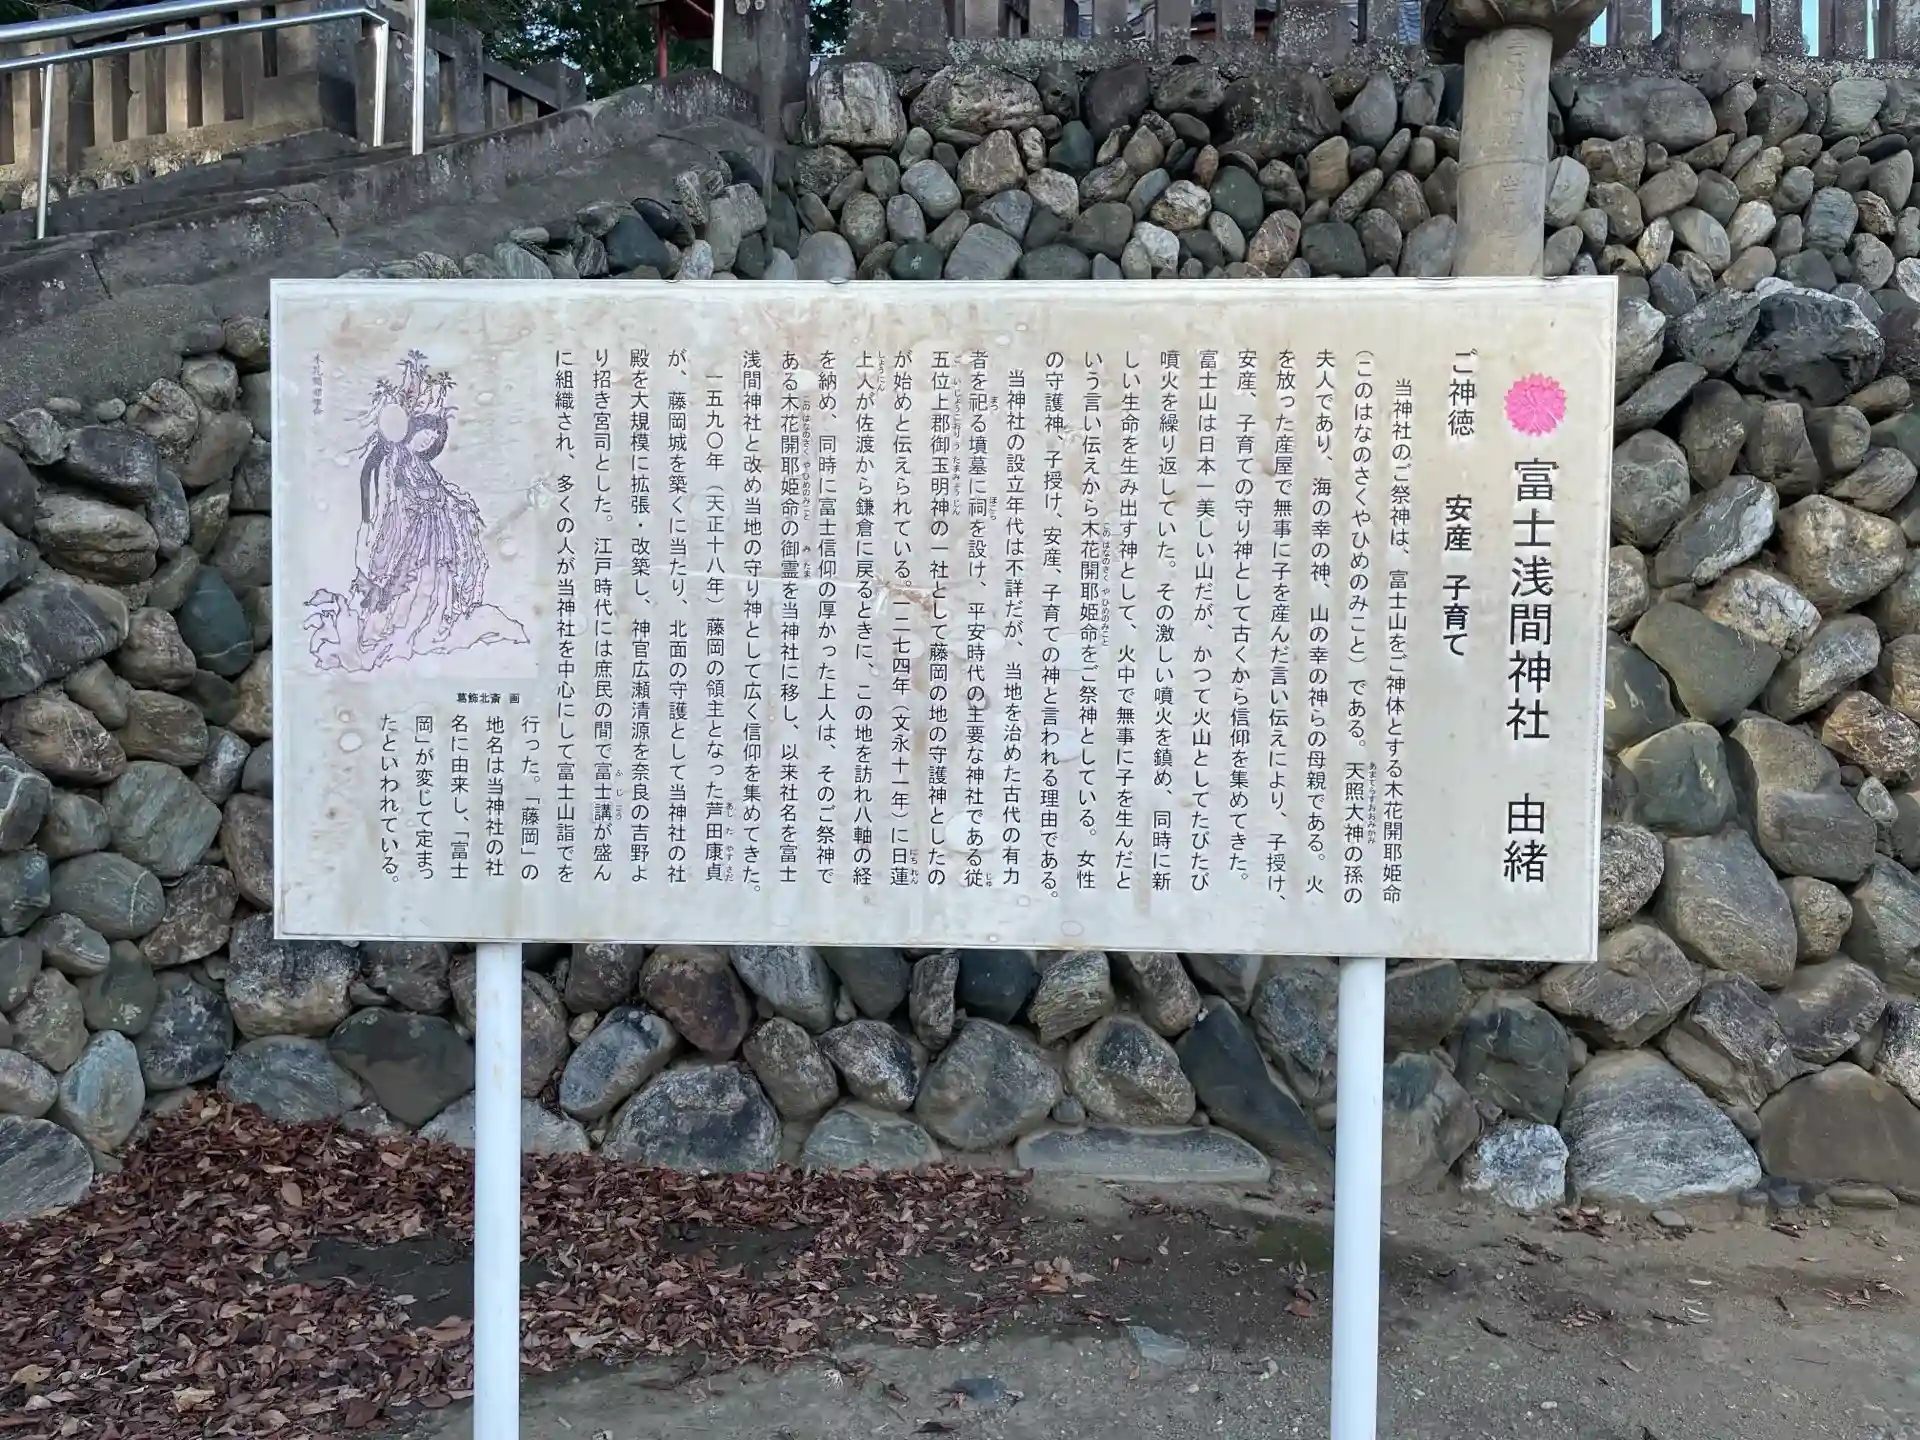 富士浅間神社　由緒
ご神徳　安産　子育て
当神社のご祭神は、富士山をご神体とする木花開耶姫命
（このはなのさくやひめのみこと）である。天照大神の孫の
あまてらすおおみかみ
夫人であり、海の幸の神、山の幸の神らの母親である。火
を放った産屋で無事に子を産んだ言い伝えにより、子授け、
安産、子育ての守り神として古くから信仰を集めてきた。
富士山は日本一美しい山だが、かつて火山としてたびたび
噴火を繰り返していた。その激しい噴火を鎮め、同時に新
しい生命を生み出す神として、火中で無事に子を生んだと
いう言い伝えから木花開耶姫命をご祭神としている。女性
このはなのさくやひめのみこと
の守護神、子授け、安産、子育ての神と言われる理由である。
当神社の設立年代は不詳だが、当地を治めた古代の有力
者を祀る墳墓に祠を設け、平安時代の主要な神社である従
まつ　ほこら　じゅ
五位上郡御玉明神の一社として藤岡の地の守護神としたの
ごいじょうこおりうたまみょうじん
が始めと伝えられている。一二七四年（文永十一年）に日蓮
にちれん
上人が佐渡から鎌倉に戻るときに、この地を訪れ八軸の経
しょうにん
を納め、同時に富士信仰の厚かった上人は、そのご祭神で
ある木花開耶姫命の御霊を当神社に移し、以来社名を富士
このはなのさくやひめのみこと　みたま
浅間神社と改め当地の守り神として広く信仰を集めてきた。
一五九〇年（天正十八年）藤岡の領主となった芦田康貞
あしだやすさだ
が、藤岡城を築くに当たり、北面の守護として当神社の社
殿を大規模に拡張・改築し、神官広瀬清源を奈良の吉野よ
り招き宮司とした。江戸時代には庶民の間で富士講が盛ん
ふじこう
に組織され、多くの人が当神社を中心にして富士山詣でを
行った。「藤岡」の
地名は当神社の社
名に由来し、「富士
岡」が変じて定まっ
たといわれている。
木花開耶姫命
葛飾北斎　画